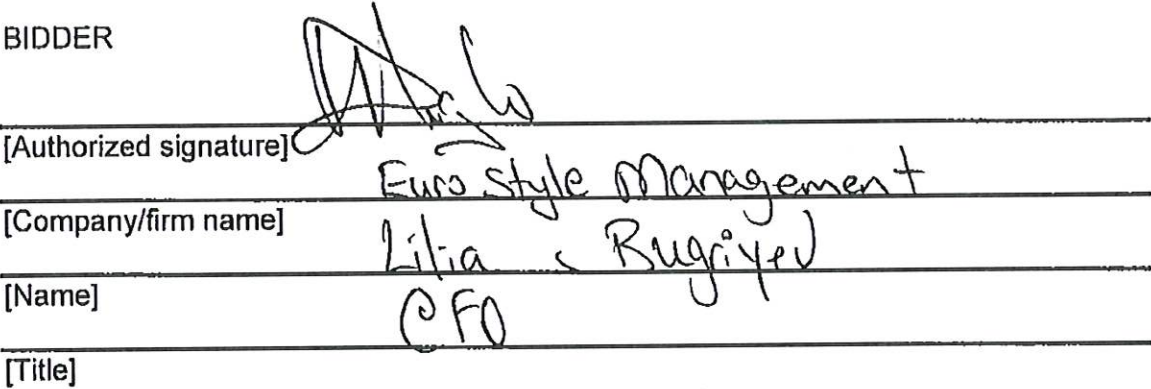 BIDDER
[Authorized signature]
Euro Style Management
[Company/firm name]
Lilia Bugriyev
[Name]
CFO
[Title]